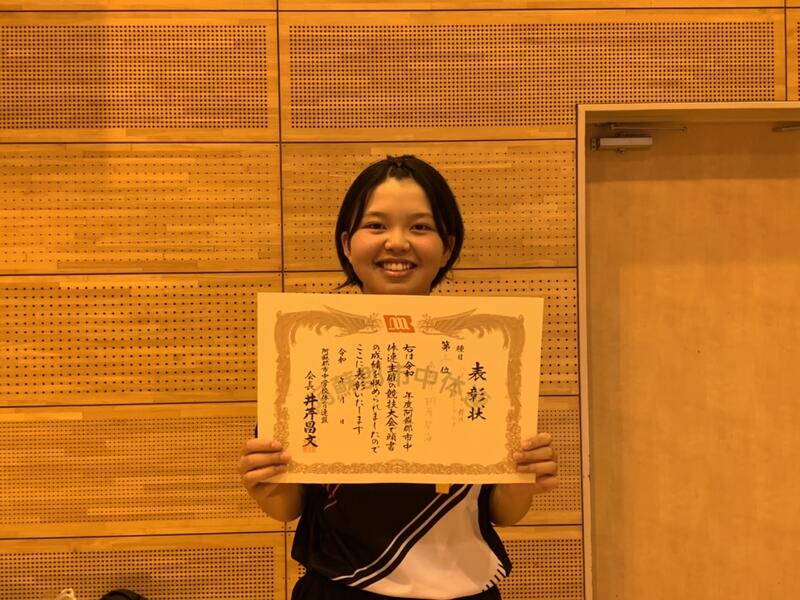 表彰状
種目
第 位
右は令和 年度阿蘇郡市中
体連主催の競技大会で頭書
の成績を収められましたので
ここに表彰いたします
令和 年 月 日
阿蘇郡市中学校体育連盟
会長 井芹昌文